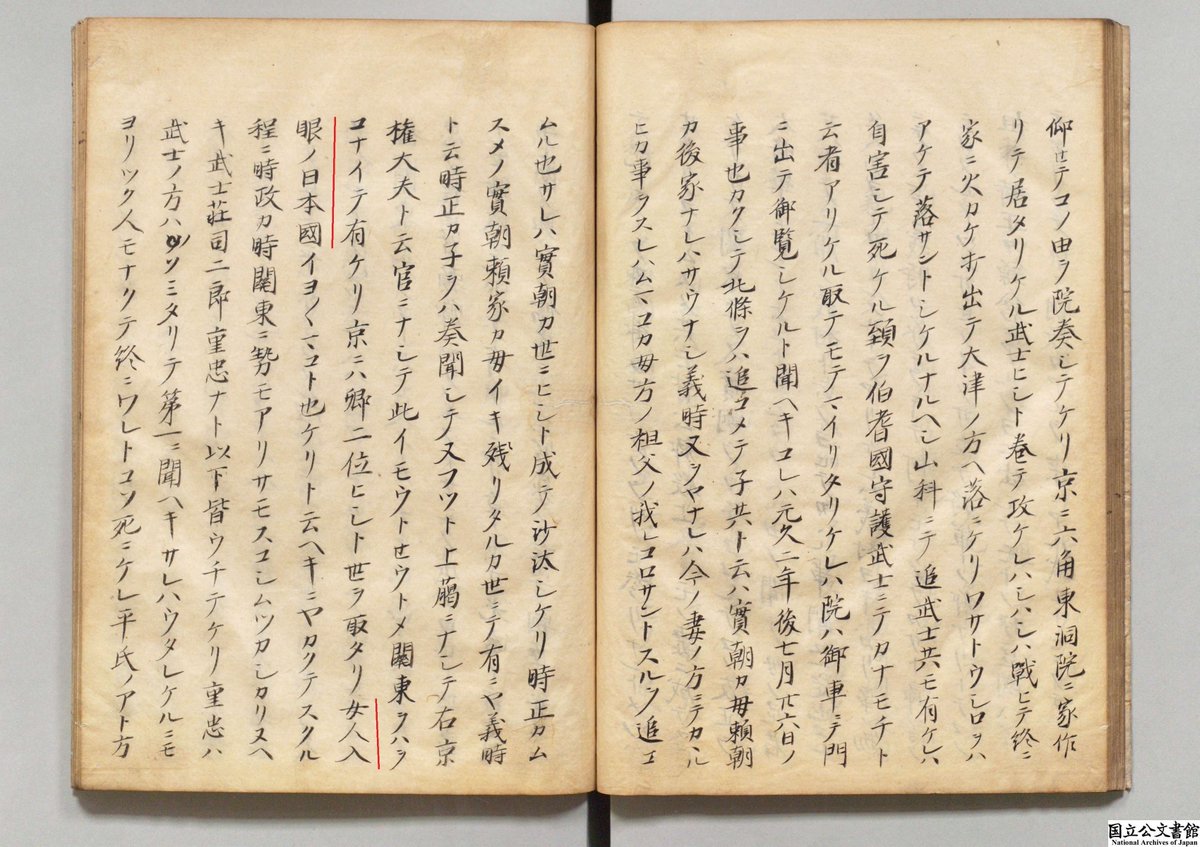 仰せテコノ由ヲ院奏シテケリ京ニ六角東洞院ニ家作
リテ居タリケル武士ヒシト巻テ攻ケレハシハシハ戦ヒテ終ニ
家ニ火カケ打出テ大津ノ方ヘ落ニケリワサトウシロヲハ
アケテ落サントシケルナルヘシ山科ニテ追武士共モ有ケレハ
自害シテ死ケル頸ヲ伯耆國守護武士ニテカナモチト
云者アリケル取テモテマイリタリケレハ院ハ御車ニテ門
ニ出テ御覧シケルト聞ヘキコレハ元久二年後七月廿六日ノ
事也カクシテ北條ヲハ追コメテ子共ト云ハ實朝カ母頼朝
カ後家ナレハサウナシ義時又ヲヤナレハ今ノ妻ノ方ニテカヽル
ヒカ事ヲスレハムマコカ母方ノ祖父ノ我レコロサントスルヲ追コ
ムル也サレハ實朝カ世ニヒシト成テ沙汰シケリ時正カム
スメノ實朝頼家カ母イキ残リタルカ世ニテ有ニヤ義時
ト云時正カ子ヲハ奏聞シテ又フツト上﨟ニナシテ右京
権大夫ト云官ニナシテ此イモウトせウトメ関東ヲハヲ
コナイテ有ケリ京ニハ卿二位ヒシト世ヲ取タリ女人入
眼ノ日本國イヨ〱マコト也ケリト云ヘキニヤカクテスクル
程ニ時政カ時関東ニ勢モアリサモスコシムツカシカリヌヘ
キ武士荘司二郎重忠ナト以下皆ウチテケリ重忠ハ
武士ノ方ハソノミタリテ第一ニ聞ヘキサレハウタレケルニモ
ヨリツク人モナクテ終ニワレトコソ死ニケレ平氏ノアト方
国立公文書館
National Archives of Japan